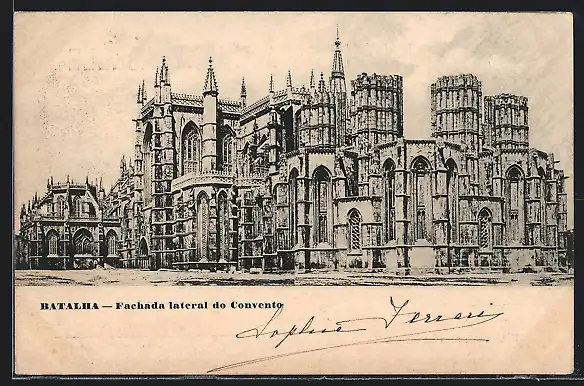 BATALHA — Fachada lateral do Convento
Sophie Ferrari